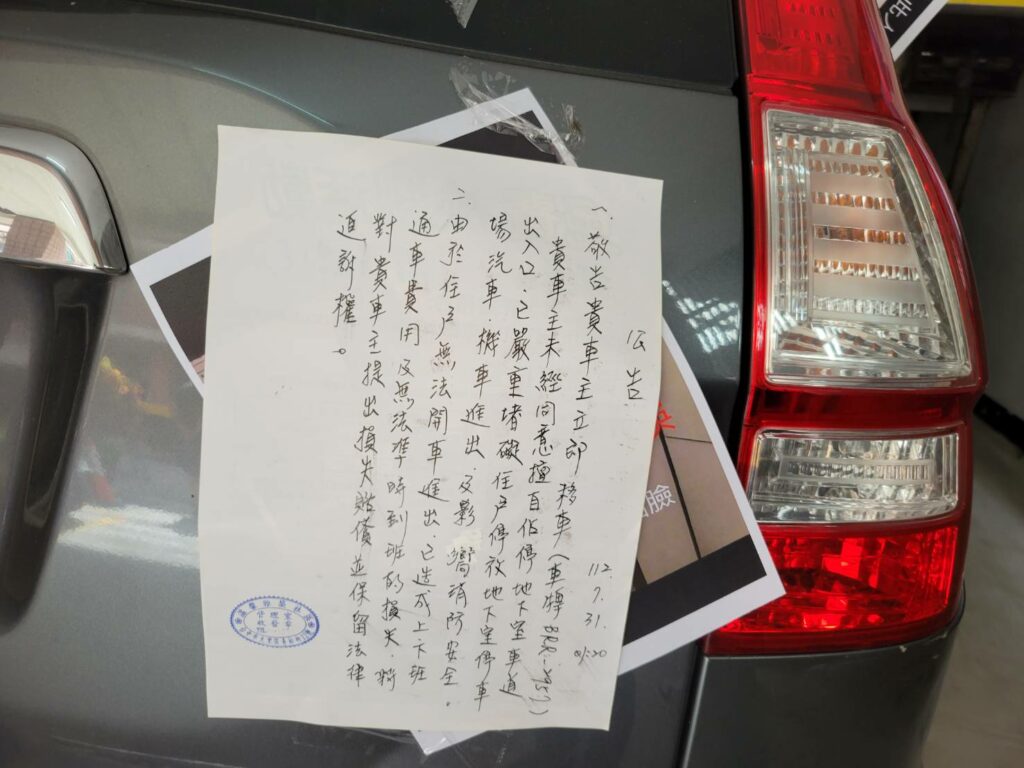 公告
112.
7.
31.
01:20
一. 敬告貴車主立即移車(車牌
貴車主未經同意擅自佔停地下室車道
出入口.已嚴重堵礙住戶停放地下室停車
場汽車.機車進出.及影嚮消防安全。
二.由於住戶無法開車進出.已造成上下班
通車費用及無法準時到班的損失.將
對貴車主提出損失賠償並保留法律
追訴權。
管理室
臉